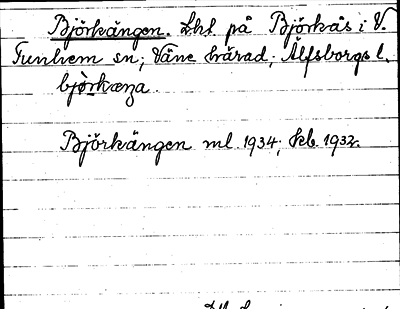 Björkängen. Lht. på Björkås i V.
Tunhem sn; Väne härad; Älfsborgs l.
bjòrkæŋa.
Björkängen ml. 1934; kb. 1932.